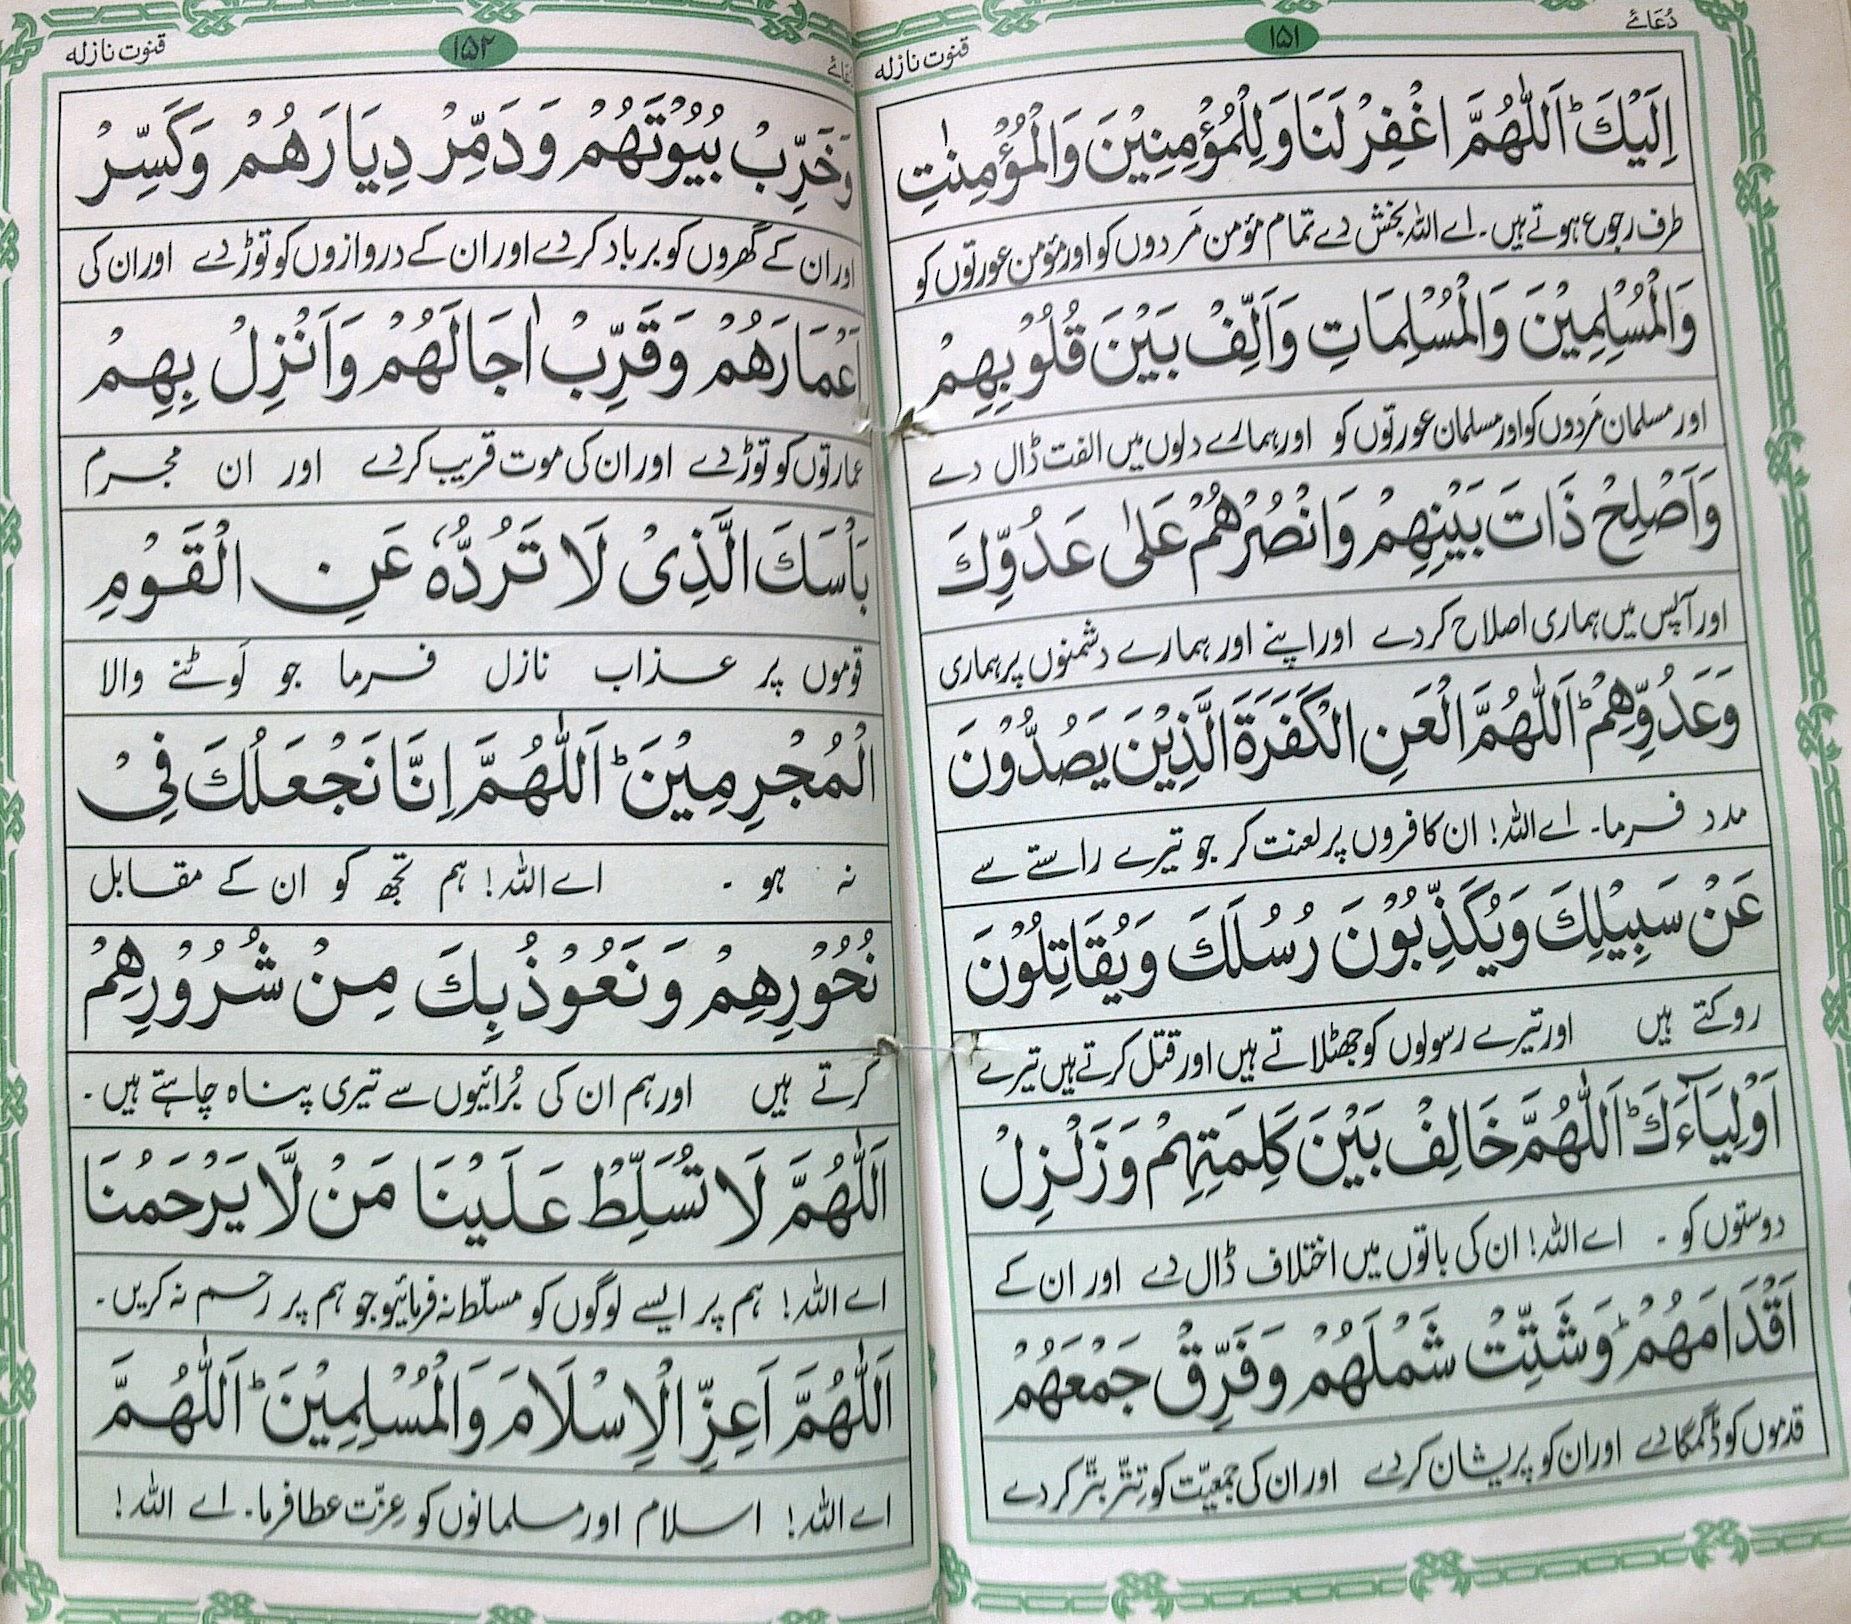 دُعَائے
۱۵۱
قنوت نازلہ
اِلَيْكَ ؕ اَللّٰهُمَّ اغْفِرْ لَنَا وَلِلْمُؤْمِنِيْنَ وَالْمُؤْمِنٰتِ
طرف رجوع ہوتے ہیں۔ اے اللہ بخش دے تمام مؤمن مَردوں کو اور مؤمن عورتوں کو
وَالْمُسْلِمِيْنَ وَالْمُسْلِمَاتِ وَاَلِّفْ بَيْنَ قُلُوْبِهِمْ
اور مسلمان مَردوں کو اور مسلمان عورتوں کو اور ہمارے دلوں میں الفت ڈال دے
وَاَصْلِحْ ذَاتَ بَيْنِهِمْ وَانْصُرْهُمْ عَلٰى عَدُوِّكَ
اور آپس میں ہماری اصلاح کردے اور اپنے اور ہمارے دشمنوں پر ہماری
وَعَدُوِّهِمْ ؕ اَللّٰهُمَّ الْعَنِ الْكَفَرَةَ الَّذِيْنَ يَصُدُّوْنَ
مدد فرما۔ اے اللہ! ان کافروں پر لعنت کر جو تیرے راستے سے
عَنْ سَبِيْلِكَ وَيُكَذِّبُوْنَ رُسُلَكَ وَيُقَاتِلُوْنَ
روکتے ہیں اور تیرے رسولوں کو جھٹلاتے ہیں اور قتل کرتے ہیں تیرے
اَوْلِيَآءَكَ ؕ اَللّٰهُمَّ خَالِفْ بَيْنَ كَلِمَتِهِمْ وَزَلْزِلْ
دوستوں کو ۔ اے اللہ! ان کی باتوں میں اختلاف ڈال دے اور ان کے
اَقْدَامَهُمْ ؕ وَشَتِّتْ شَمْلَهُمْ وَفَرِّقْ جَمْعَهُمْ
قدموں کو ڈگمگا دے اور ان کو پریشان کردے اور ان کی جمعیّت کو تِتّر بتّر کردے
دُعَائے
۱۵۲
قنوت نازلہ
وَخَرِّبْ بُيُوْتَهُمْ وَدَمِّرْ دِيَارَهُمْ وَكَسِّرْ
اور ان کے گھروں کو برباد کردے اور ان کے دروازوں کو توڑ دے اور ان کی
اَعْمَارَهُمْ وَقَرِّبْ اٰجَالَهُمْ وَاَنْزِلْ بِهِمْ
عمارتوں کو توڑ دے اور ان کی موت قریب کردے اور ان مجرم
بَاْسَكَ الَّذِىْ لَا تَرُدُّهٗ عَنِ الْقَوْمِ
قوموں پر عذاب نازل فرما جو لَوٹنے والا
الْمُجْرِمِيْنَ ؕ اَللّٰهُمَّ اِنَّا نَجْعَلُكَ فِىْ
نہ ہو ۔ اے اللہ! ہم تجھ کو ان کے مقابل
نُحُوْرِهِمْ وَنَعُوْذُ بِكَ مِنْ شُرُوْرِهِمْ
کرتے ہیں اور ہم ان کی بُرائیوں سے تیری پناہ چاہتے ہیں۔
اَللّٰهُمَّ لَا تُسَلِّطْ عَلَيْنَا مَنْ لَّا يَرْحَمُنَا
اے اللہ! ہم پر ایسے لوگوں کو مسلّط نہ فرمائیو جو ہم پر رحم نہ کریں۔
اَللّٰهُمَّ اَعِزِّ الْاِسْلَامَ وَالْمُسْلِمِيْنَ ؕ اَللّٰهُمَّ
اے اللہ! اسلام اور مسلمانوں کو عزّت عطا فرما۔ اے اللہ!